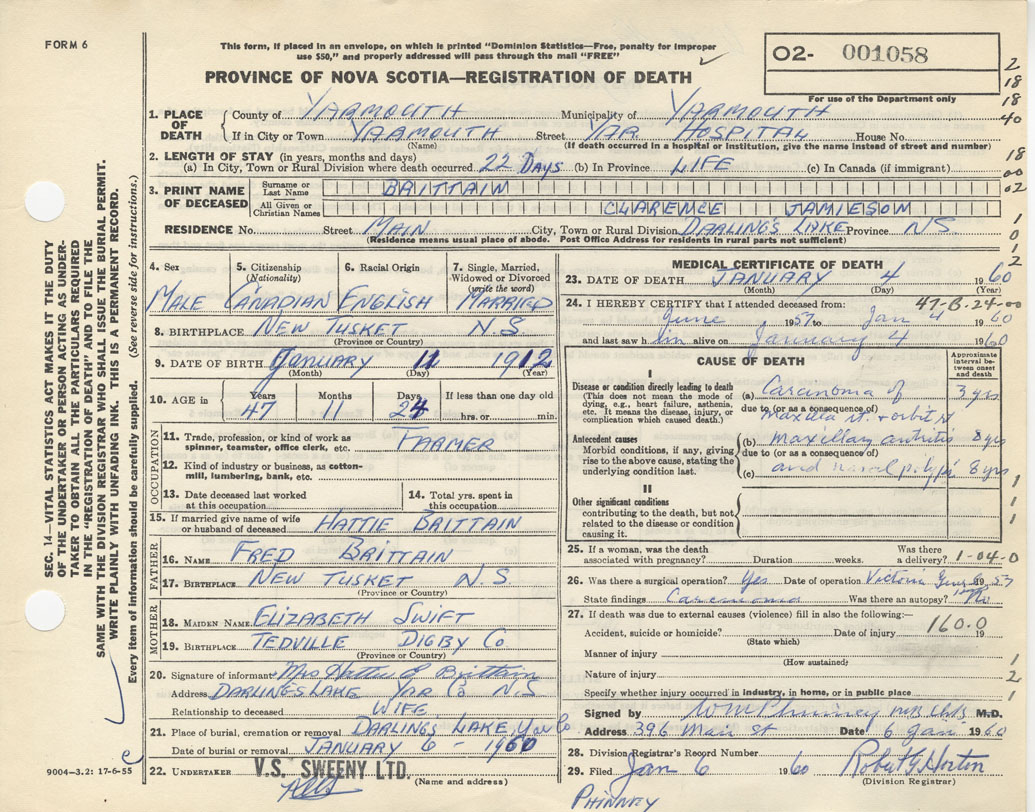 FORM 6
This form, if placed in an envelope, on which is printed "Dominion Statistics—Free, penalty for improper
use $50," and properly addressed will pass through the mail "FREE"
PROVINCE OF NOVA SCOTIA—REGISTRATION OF DEATH
O2- 001058
For use of the Department only
2
18
18
40
18
00
02
1
0
1
2
1. PLACE OF DEATH
County of YARMOUTH Municipality of YARMOUTH
If in City or Town YARMOUTH Street YAR HOSPITAL House No.
(Name) (If death occurred in a hospital or institution, give the name instead of street and number)
2. LENGTH OF STAY (in years, months and days)
(a) In City, Town or Rural Division where death occurred 22 DAYS (b) In Province LIFE (c) In Canada (if immigrant)
3. PRINT NAME OF DECEASED
Surname or Last Name BRITTAIN
All Given or Christian Names CLARENCE JAMIESON
RESIDENCE No. Street MAIN City, Town or Rural Division DARLING'S LAKE Province N.S.
(Residence means usual place of abode. Post Office Address for residents in rural parts not sufficient)
4. Sex MALE
5. Citizenship (Nationality) CANADIAN
6. Racial Origin ENGLISH
7. Single, Married, Widowed or Divorced (write the word) MARRIED
8. BIRTHPLACE NEW TUSKET N.S
(Province or Country)
9. DATE OF BIRTH JANUARY 11 1912
(Month) (Day) (Year)
10. AGE in Years 47 Months 11 Days 24 If less than one day old
hrs. or min.
OCCUPATION
11. Trade, profession, or kind of work as spinner, teamster, office clerk, etc. FARMER
12. Kind of industry or business, as cotton-mill, lumbering, bank, etc.
13. Date deceased last worked at this occupation
14. Total yrs. spent in this occupation
15. If married give name of wife or husband of deceased HATTIE BRITTAIN
FATHER
16. NAME FRED BRITTAIN
17. BIRTHPLACE NEW TUSKET N.S
(Province or Country)
MOTHER
18. MAIDEN NAME ELIZABETH SWIFT
19. BIRTHPLACE TEDVILLE DIGBY Co
(Province or Country)
20. Signature of informant Mrs Hattie E Brittain
Address DARLINGS LAKE YAR Co N S
Relationship to deceased WIFE
21. Place of burial, cremation or removal DARLINGS LAKE, Yar Co
Date of burial or removal JANUARY 6 - 1960
22. UNDERTAKER V.S. SWEENY LTD.
(Name and address)
MEDICAL CERTIFICATE OF DEATH
23. DATE OF DEATH JANUARY 4 1960
(Month) (Day) (Year)
24. I HEREBY CERTIFY that I attended deceased from: 47-B-24-00
June 1957 to Jan 4 1960
and last saw h im alive on January 4 1960
CAUSE OF DEATH
Approximate interval between onset and death
I
Disease or condition directly leading to death
(This does not mean the mode of dying, e.g., heart failure, asthenia, etc. It means the disease, injury, or complication which caused death.)
(a) Carcinoma of 3 yrs
due to (or as a consequence of)
maxilla rt. + orbit rt
Antecedent causes
Morbid conditions, if any, giving rise to the above cause, stating the underlying condition last.
(b) maxillary antritis 8 yrs
due to (or as a consequence of)
(c) and nasal polypi 8 yrs
II
Other significant conditions
contributing to the death, but not related to the disease or condition causing it.
1
1
1
25. If a woman, was the death associated with pregnancy? Duration weeks. Was there a delivery? 1-04-0
26. Was there a surgical operation? Yes Date of operation Victoria 1957
State findings Carcinoma Was there an autopsy? No
27. If death was due to external causes (violence) fill in also the following:—
160.0
Accident, suicide or homicide? Date of injury 19
(State which)
Manner of injury 1
(How sustained)
Nature of injury 2
Specify whether injury occurred in industry, in home, or in public place 1
Signed by W M Phinney MB ChB M.D.
Address 396 Main St Date 6 Jan 1960
28. Division Registrar's Record Number
29. Filed Jan 6 1960 Robert G Horton
(Division Registrar)
PHINNEY
9004—3.2: 17-6-55
SEC. 14—VITAL STATISTICS ACT MAKES IT THE DUTY
OF THE UNDERTAKER OR PERSON ACTING AS UNDER-
TAKER TO OBTAIN ALL THE PARTICULARS REQUIRED
IN THE "REGISTRATION OF DEATH" AND TO FILE THE
SAME WITH THE DIVISION REGISTRAR WHO SHALL ISSUE THE BURIAL PERMIT.
WRITE PLAINLY WITH UNFADING INK. THIS IS A PERMANENT RECORD.
Every item of information should be carefully supplied. (See reverse side for instructions.)